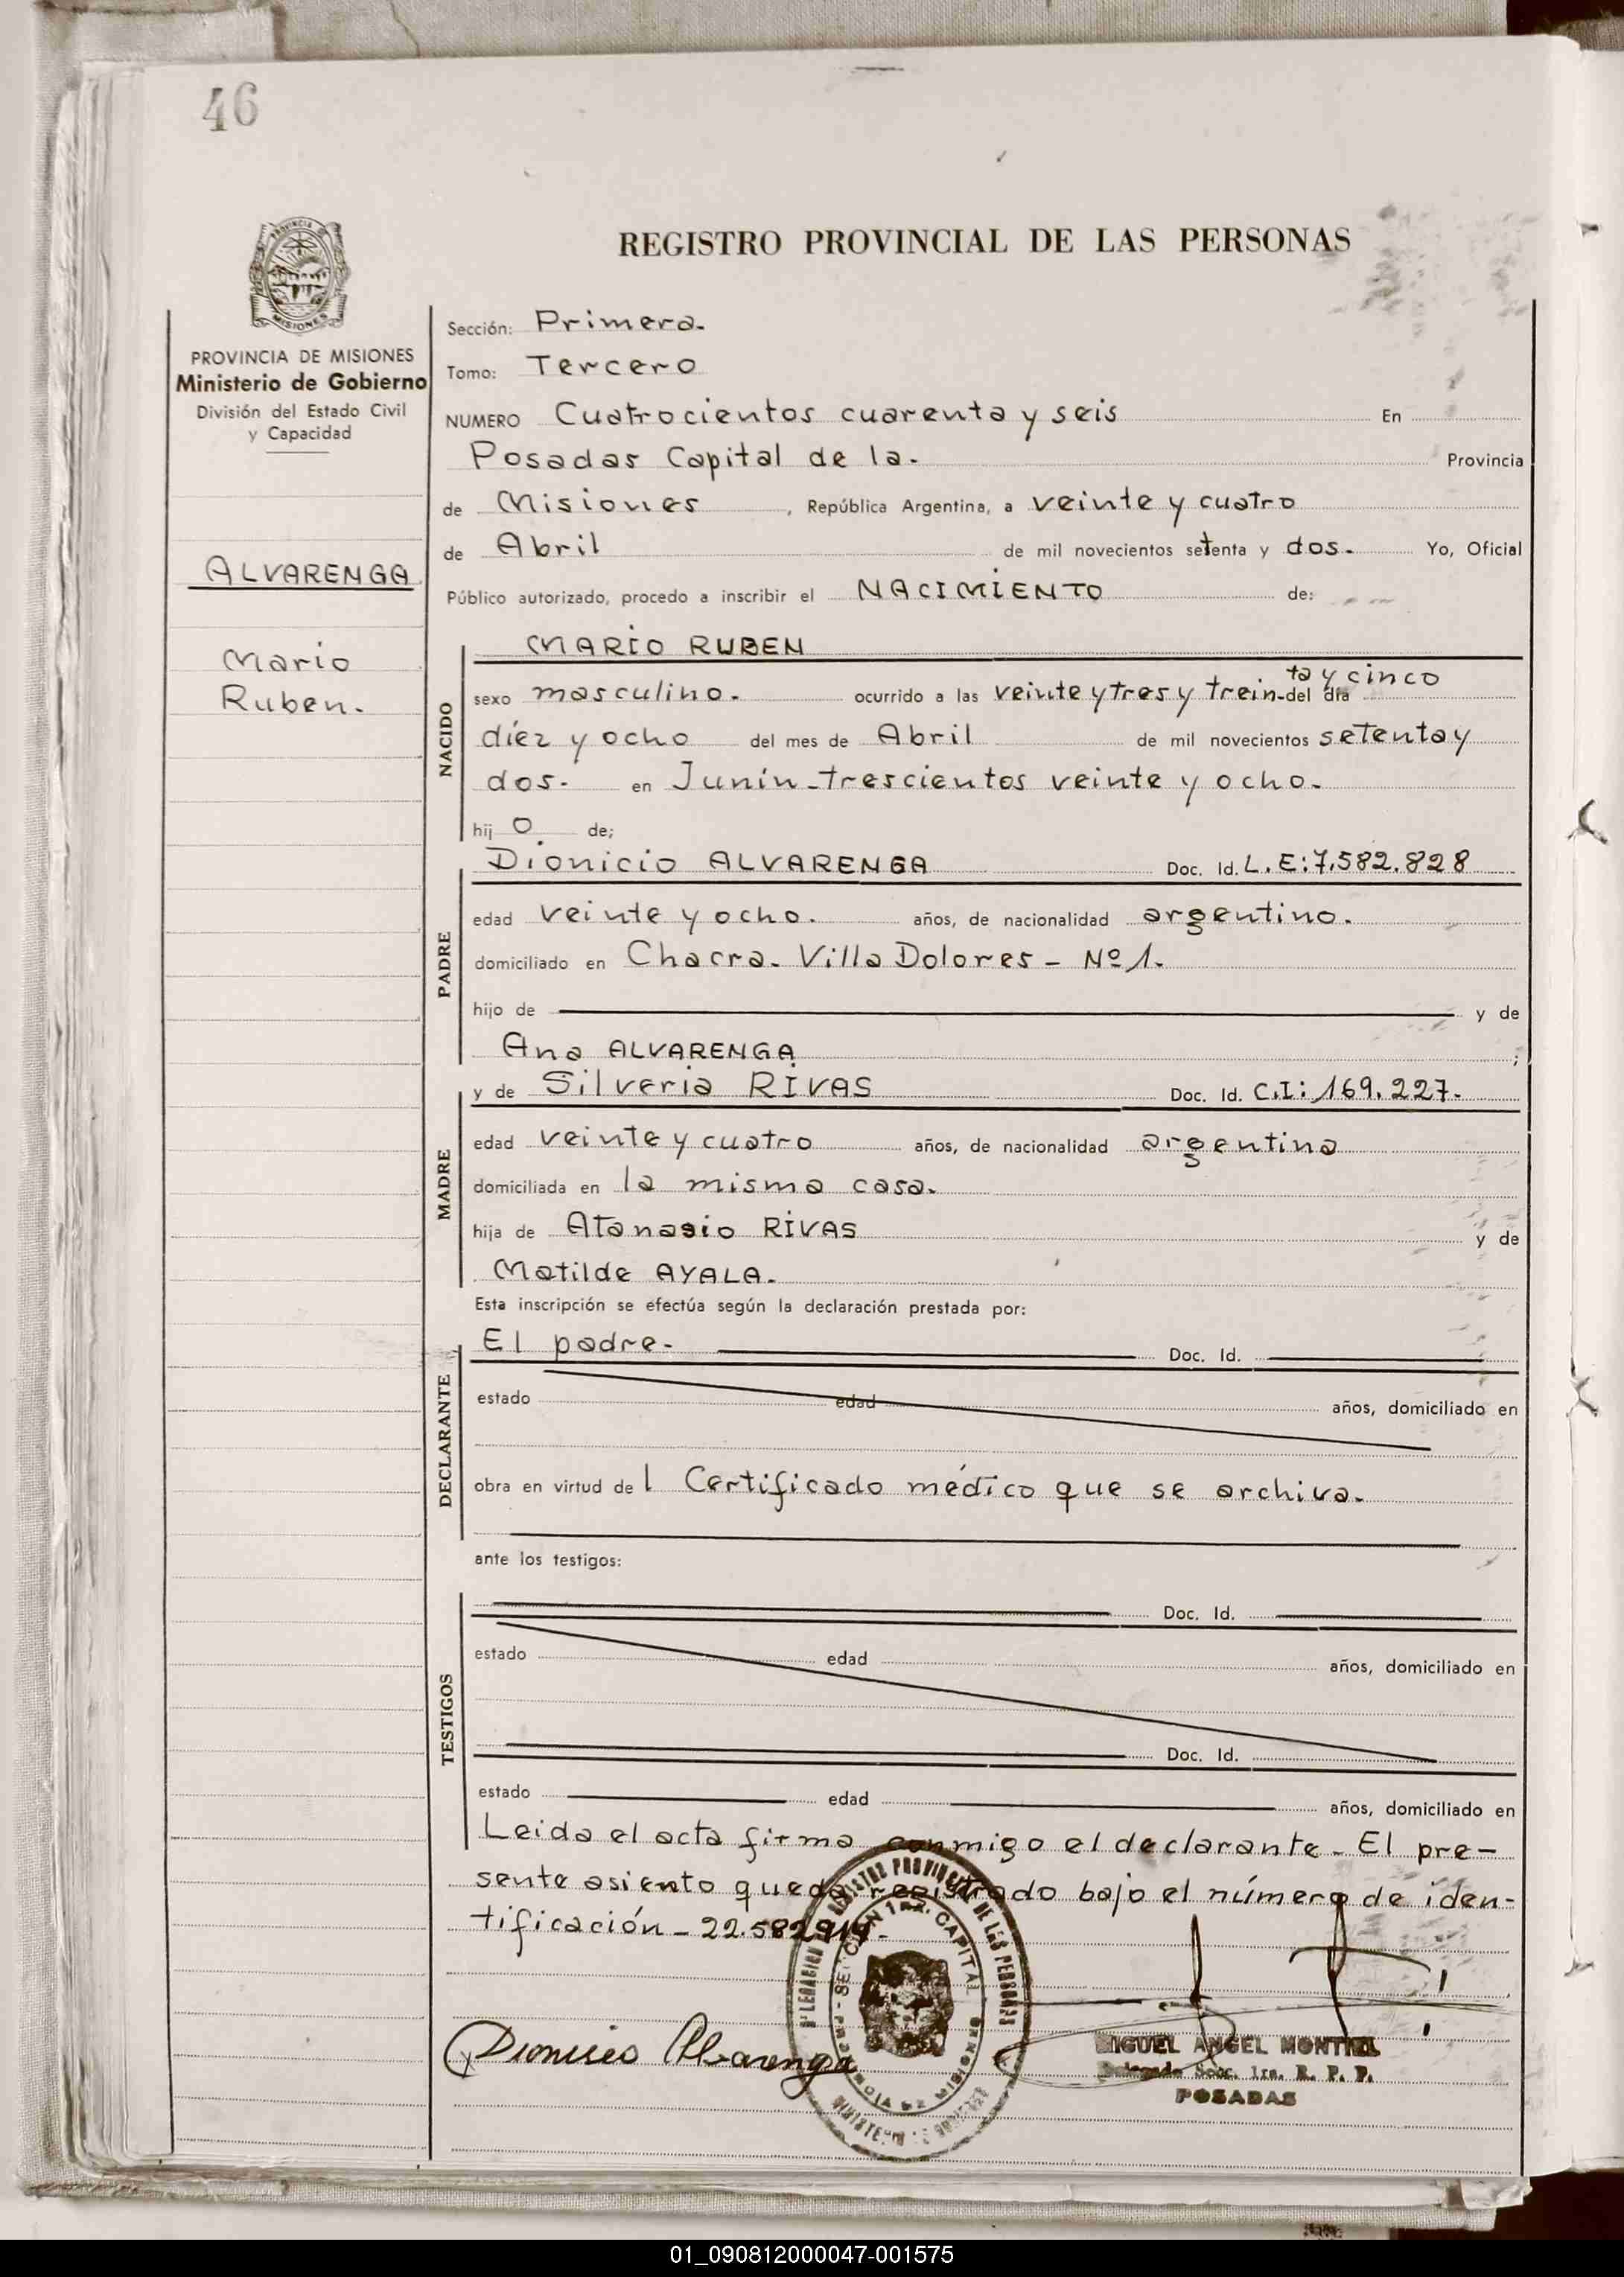 46
REGISTRO PROVINCIAL DE LAS PERSONAS
PROVINCIA DE MISIONES
Ministerio de Gobierno
División del Estado Civil
y Capacidad
ALVARENGA
Mario
Ruben.
Sección: Primera.
Tomo: Tercero
NUMERO Cuatrocientos cuarenta y seis En
Posadas Capital de la. Provincia
de Misiones, República Argentina, a veinte y cuatro
de Abril de mil novecientos setenta y dos. Yo, Oficial
Público autorizado, procedo a inscribir el NACIMIENTO de:
NACIDO
MARIO RUBEN
ta y cinco
sexo masculino. ocurrido a las veinte y tres y trein- del día
diez y ocho del mes de Abril de mil novecientos setenta y
dos. en Junín - trescientos veinte y ocho.
hij o de;
PADRE
Dionicio ALVARENGA Doc. Id. L.E: 7.582.828
edad veinte y ocho. años, de nacionalidad argentino.
domiciliado en Chacra. Villa Dolores - Nº 1.
hijo de y de
Ana ALVARENGA ;
MADRE
y de Silveria RIVAS Doc. Id. C.I: 169.227.
edad veinte y cuatro años, de nacionalidad argentina
domiciliada en la misma casa.
hija de Atanasio RIVAS y de
Matilde AYALA.
Esta inscripción se efectúa según la declaración prestada por:
DECLARANTE
El padre. Doc. Id.
estado edad años, domiciliado en
obra en virtud de l Certificado médico que se archiva.
ante los testigos:
TESTIGOS
Doc. Id.
estado edad años, domiciliado en
Doc. Id.
estado edad años, domiciliado en
Leida el acta firma conmigo el declarante. El pre-
sente asiento queda registrado bajo el número de iden-
tificación -
Dionicio Alvarenga
MIGUEL ANGEL MONTIEL
Delegado Secc. 1ra. R. P. P.
POSADAS
01_090812000047-001575